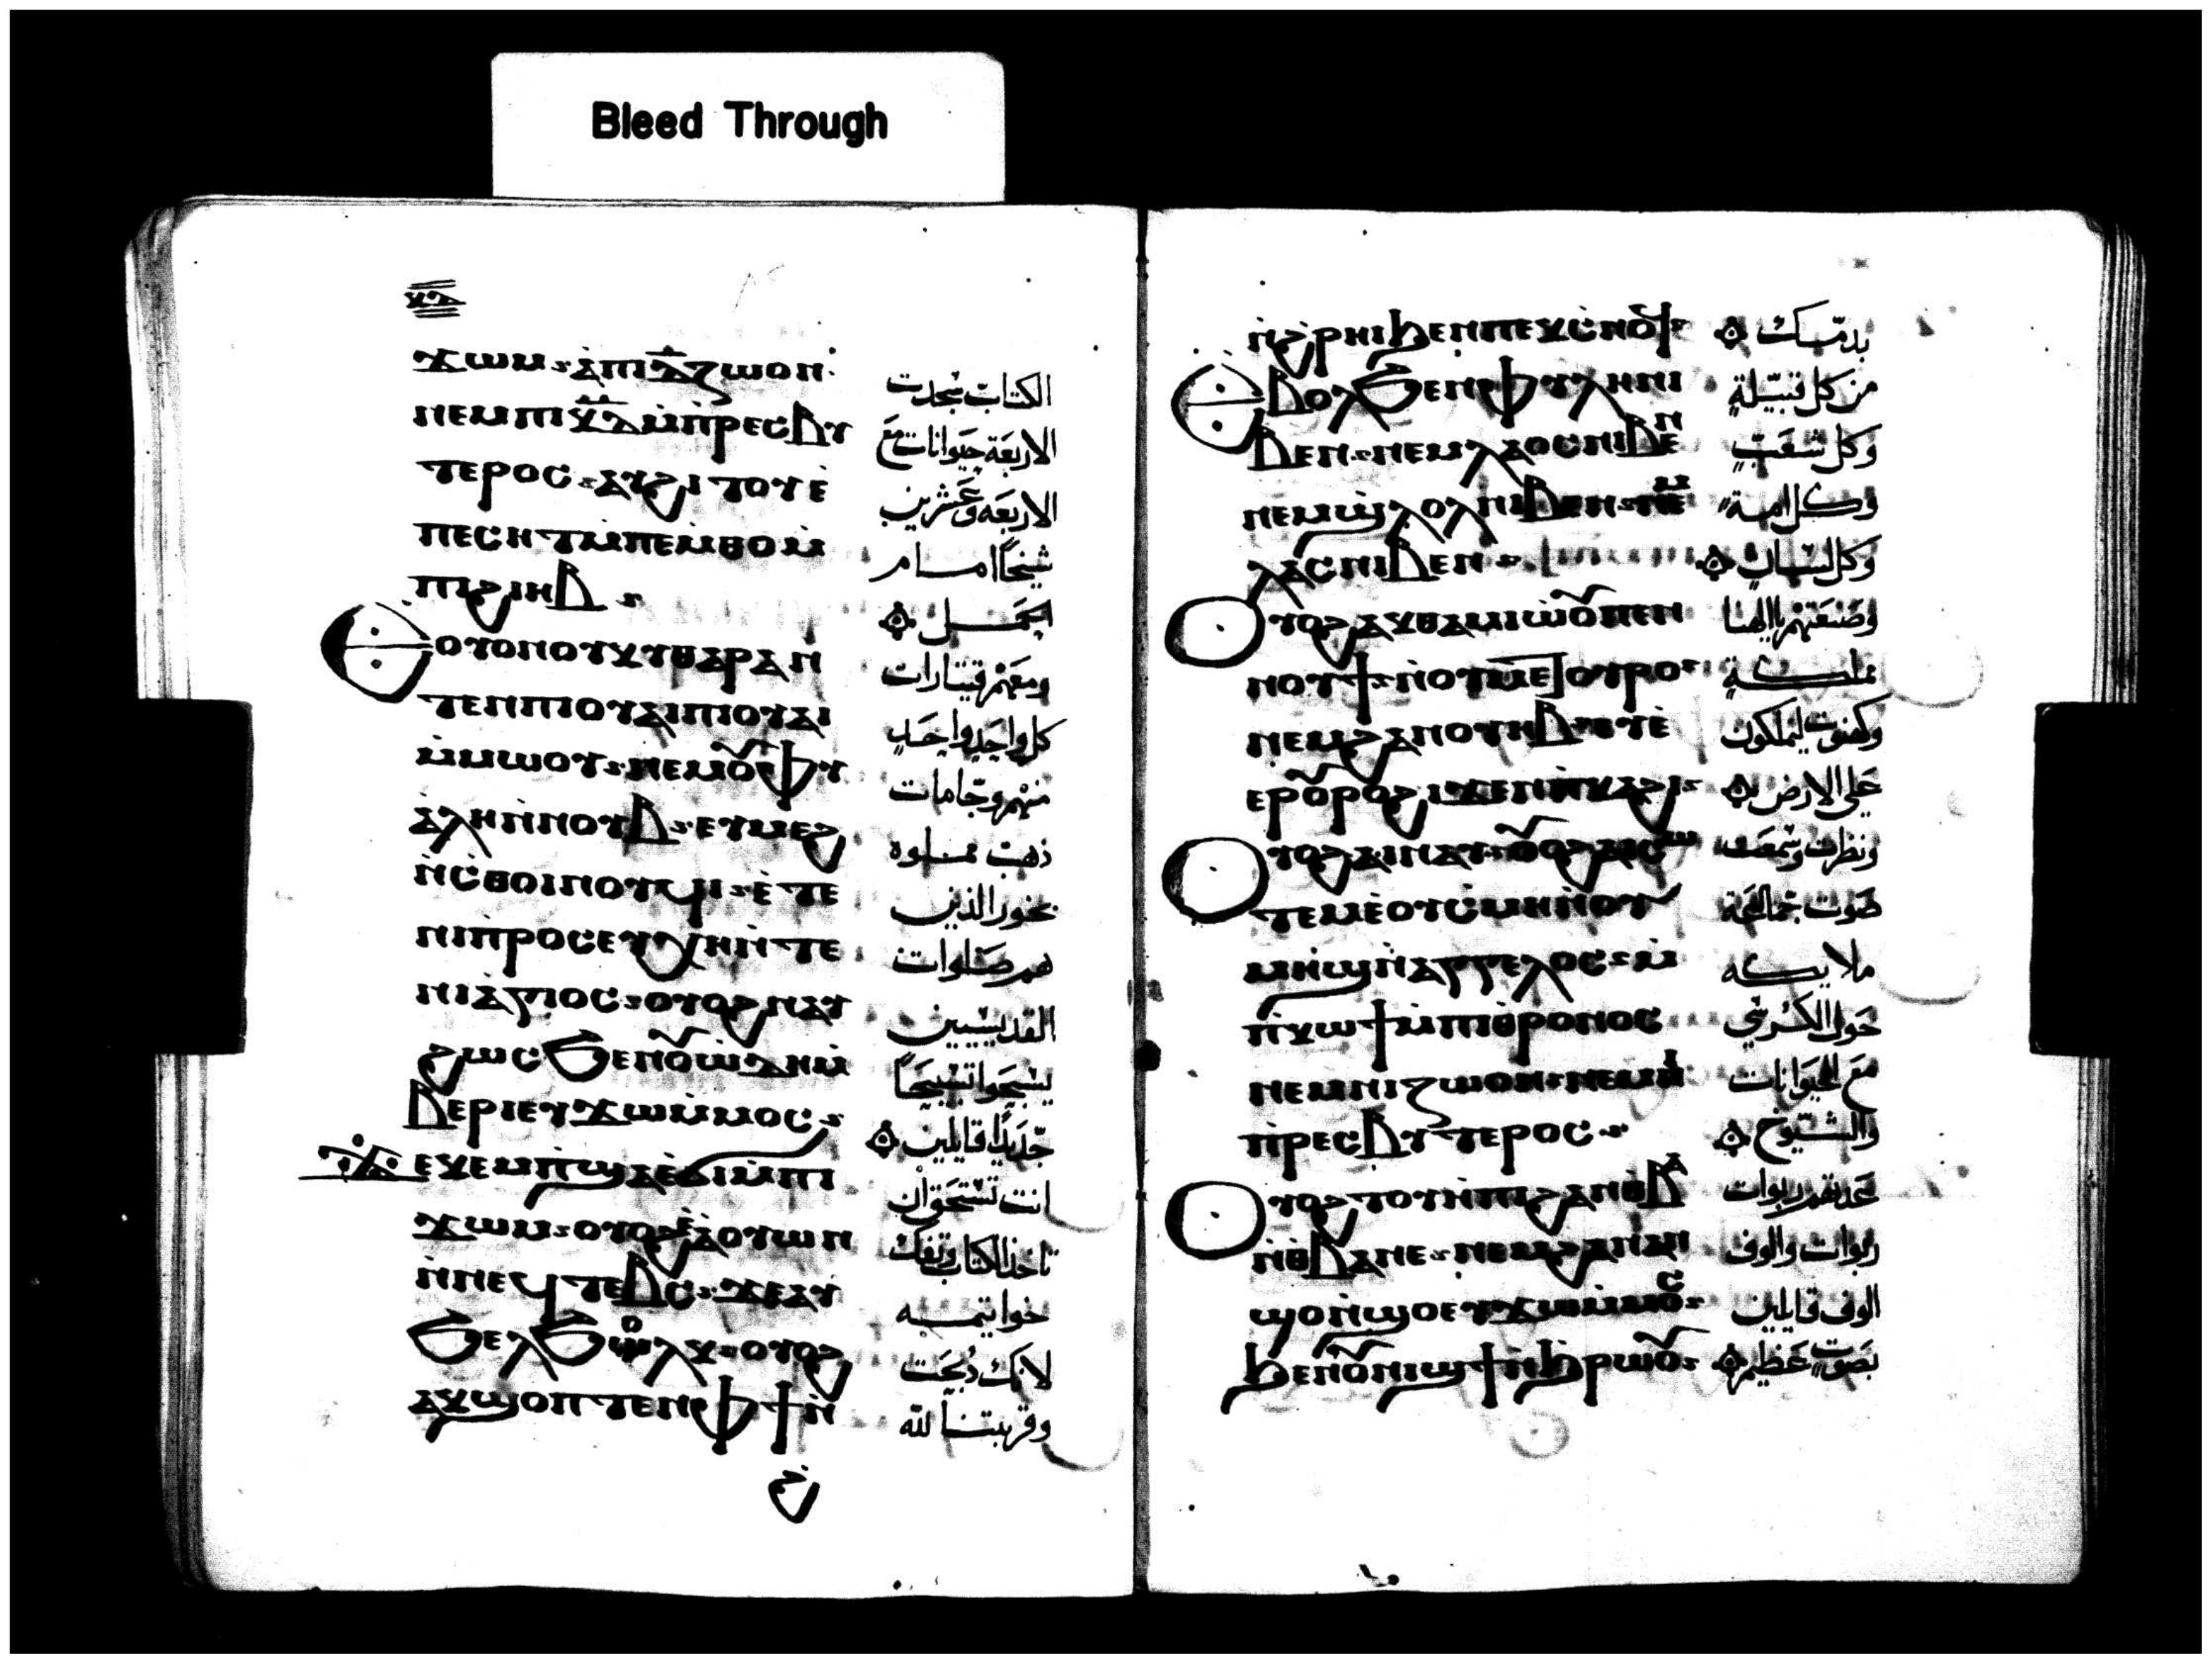 Bleed Through
ϫⲱⲙ ⲁ̀ⲡⲓⲇ̅ⲛ̀ⲍⲱⲟⲛ
ⲛⲉⲙⲡⲓⲕ̅ⲇ̅ⲙ̀ⲡⲣⲉⲥⲃⲩ
ⲧⲉⲣⲟⲥ ⲁⲩϩⲓⲧⲟⲩⲉ̀
ⲡⲉⲥⲏⲧⲙ̀ⲡⲉⲙⲑⲟⲙ̀
ⲡⲓϩⲓⲏⲃ
ⲉⲟⲩⲟⲛⲟⲩⲕⲩⲑⲁⲣⲁⲛ
ⲧⲉⲛⲡⲓⲟⲩⲁⲓⲡⲓⲟⲩⲁⲓ
ⲙ̀ⲙⲱⲟⲩ ⲛⲉⲙⲟ̅ⲫⲩ
ⲁ̀ⲗⲏⲛ̀ⲛⲟⲩⲃ ⲉⲩⲙⲉϩ
ⲛ̀ⲥ̀ⲑⲟⲓⲛⲟⲩϥⲓ ⲉ̀ⲧⲉ
ⲛⲓⲡ̀ⲣⲟⲥⲉⲩⲭⲏⲛ̀ⲧⲉ
ⲛⲓⲁⲅⲓⲟⲥ ⲟⲩⲟϩⲛⲁⲩ
ϩⲱⲥϧⲉⲛⲟ̅ⲱ̀ⲇⲏⲙ̀
ⲃⲉⲣⲓⲉⲩϫⲱⲙ̀ⲙⲟⲥ
ⲕ̀ⲉⲙⲡ̀ϣⲁⲉ̀ϭⲓⲙ̀ⲡⲓ
ϫⲱⲙ ⲟⲩⲟϩⲉ̀ⲁⲟⲩⲱⲛ
ⲛ̀ⲛⲉϥⲧⲉⲃⲥ ϫⲉⲁⲩ
ϧⲉⲗϧⲱⲗⲕ ⲟⲩⲟϩ
ⲁⲕϣⲟⲡⲧⲉⲛⲫϯⲛ̀
الكتاب سجدت
الاربعة حيوانات مع
الاربعه وعشرين
شيخًا امام
الحمل
ومعهم قيتارات
كل واحدٍ واحدٍ
منهم وجامات
ذهب مملوه
بخور الذين
هم صلوات
القديسيين
يسبحوا تسبيحًا
جديدًا قايلين
انت تستحق ان
تاخذ الكتاب وتفك
خواتيمه
لانك ذُبحت
وقربتنا لله
ⲛ̀ϩ̀ⲣⲏⲓϧⲉⲛⲡⲉⲕⲥ̀ⲛⲟϥ
ⲉⲃⲟⲗϧⲉⲛⲫⲩⲗⲏⲛⲓ
ⲃⲉⲛ ⲛⲉⲙⲗⲁⲟⲥⲛⲓⲃⲉⲛ
ⲛⲉⲙϣ̀ⲗⲟⲗⲛⲓⲃⲉⲛ ⲛⲉⲙ
ⲗⲁⲥⲛⲓⲃⲉⲛ
ⲟⲩⲟϩⲁⲕⲑⲁⲙⲓⲱⲟ̅ⲡⲉⲛ
ⲛⲟⲩϯ ⲛ̀ⲟⲩⲙⲉⲧⲟⲩⲣⲟ
ⲛⲉⲙϩⲁⲛⲟⲩⲏⲃ ⲉⲩⲉ̀
ⲉⲣⲟ̅ⲣⲟϩⲓϫⲉⲛⲡ̀ⲕⲁϩⲓ
ⲟⲩⲟϩⲁⲓⲛⲁⲩ ⲟ̅ⲟϩⲁⲓⲥⲱ
ⲧⲉⲙⲉ̀ⲟⲩⲥ̀ⲙⲏⲛ̀ⲟⲩ
ⲙⲏϣⲛ̀ⲁⲅⲅⲉⲗⲟⲥ ⲙ̀
ⲡ̀ⲕⲱϯⲙ̀ⲡⲓⲑⲣⲟⲛⲟⲥ
ⲛⲉⲙⲛⲓⲍⲱⲟⲛ ⲛⲉⲙⲛⲓ
ⲡ̀ⲣⲉⲥⲃⲩⲧⲉⲣⲟⲥ
ⲟⲩⲟϩⲧⲟⲩⲏⲡⲓϩⲁⲛⲑ̀ⲃⲁ
ⲛ̀ⲑ̀ⲃⲁⲛⲉ ⲛⲉⲙϩⲁⲛⲁⲛ
ϣⲟⲛ̀ϣⲟⲉⲩϫⲱⲙ̀ⲙⲟⲥ
ϧⲉⲛⲟ̅ⲛⲓϣϯⲛ̀ϧ̀ⲣⲱⲟ̅
بدمك
من كل قبيلةٍ
وكل شعبٍ
وكل امةٍ
وكل لسانٍ
وصنعتهم يا الهنا
مملكةٍ
وكهنوت ليملكون
على الارض
ونظرت وسمعت
صوت جماعة
ملايكه
حول الكرسي
مع الحيوانات
والشيوخ
عددهم ربوات
ربوات والوف
الوف قايلين
بصوت عظيم